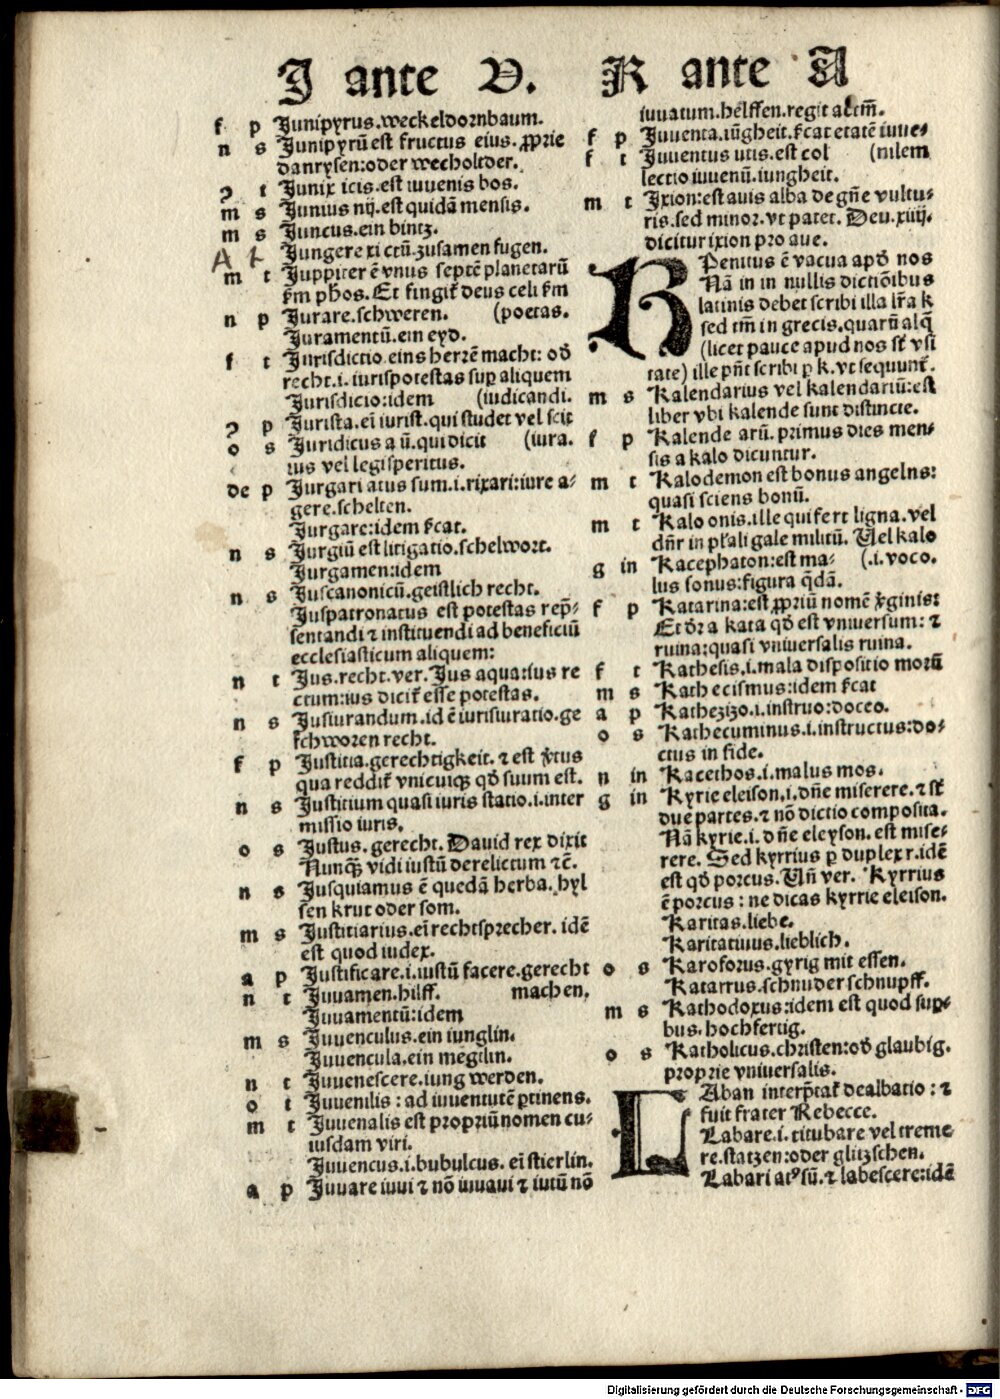 J ante V.
f p Junipyrus.weckeldornbaum.
n s Junipyrū est fructus eius. ꝓprie
danrysen:oder wecholtder.
ꝯ t Junix icis.est iuuenis bos.
m s Junius nij.est quidā mensis.
m s Juncus.ein bintz.
A t Jungere xi ctū.zusamen fugen.
m t Juppiter ē vnus septē planetarū
ẜm pħos. Et fingit᷑ deus celi ẜm
n p Jurare.schweren. (poetas.
Juramentū.ein eyd.
f t Jurisdictio.eins herrē macht: od᷑
recht.i.iurispotestas suꝑ aliquem
Jurisdicio:idem (iudicandi.
ꝯ p Jurista.eī iurist.qui studet vel scit
o s Juridicus a ū.qui dicit (iura.
ius vel legisperitus.
de p Jurgari atus sum.i.rixari:iure a⸗
gere.schelten.
Jurgare:idem ẜcat.
n s Jurgiū est litigatio.schelwort.
Jurgamen:idem
n s Juscanonicū.geistlich recht.
Juspatronatus est potestas rep̄⸗
sentandi ⁊ instituendi ad beneficiū
ecclesiasticum aliquem:
n t Jus.recht.ver. Jus aqua:ius re
ctum:ius dicit᷑ esse potestas.
n s Jusiurandum.id ē iurisiuratio.ge
schworen recht.
f p Justitia.gerechtigkeit. ⁊ est v᷑tus
qua reddit᷑ vnicuiqꝫ qd᷑ suum est.
n s Justitium quasi iuris statio.i.inter
missio iuris.
o s Justus. gerecht. Dauid rex dixit
Nunqꝫ̄ vidi iustū derelictum ⁊c̄.
n s Jusquiamus ē quedā herba. hyl
sen krut oder som.
m s Justitiarius.eī rechtsprecher. idē
est quod iudex.
a p Justificare.i.iustū facere.gerecht
n t Juuamen.hilff. machen.
Juuamentū:idem
m s Juuenculus.ein iunglin.
Juuencula.ein megtlin.
n t Juuenescere.iung werden.
o t Juuenilis : ad iuuentutē ꝑtinens.
m t Juuenalis est propriū nomen cu⸗
iusdam viri.
Juuencus.i.bubulcus. eī stierlin.
a p Juuare iuui ⁊ nō iuuaui ⁊ iutū nō
K ante A
iuuatum.helffen.regit actm̄.
f p Juuenta.iūgheit.ẜcat etatē iuue⸗
f t Juuentus utis.est col (nilem
lectio iuuenū.iungheit.
m t Jxion:est auis alba de gn̄e vultu⸗
ris.sed minor.vt patet. Deu.xiiij.
dicitur ixion pro aue.
K Penitus ē vacua apd᷑ nos
Nā in in nullis dictiōibus
latinis debet scribi illa lr̄a k
sed tm̄ in grecis.quarū alq̄
(licet pauce apud nos st᷑ vsi
tate) ille pn̄t scribi ꝑ k.vt sequunt᷑.
m s Kalendarius vel kalendariū:est
liber vbi kalende sunt distincte.
f p Kalende arū. primus dies men⸗
sis a kalo dicuntur.
m t Kalodemon est bonus angelus:
quasi sciens bonū.
m t Kalo onis.ille qui fert ligna.vel
dn̄r in pl᷑ali gale militū. Uel kalo
g in Kacephaton:est ma⸗ (.i.voco.
lus sonus:figura q̄dā.
f p Katarina:est ꝓpriū nomē v᷑ginis:
Et dr̄ a kata qd᷑ est vniuersum: ⁊
ruina:quasi vniuersalis ruina.
f t Kathesis.i.mala dispositio morū
m s Kathecismus:idem ẜcat
a p Kathezizo.i.instruo:doceo.
o s Kathecuminus.i.instructus:do⸗
ctus in fide.
n in Kacethos.i.malus mos.
g in Kyrie eleison.i.dn̄e miserere.⁊ st᷑
due partes.⁊ nō dictio composita.
Nā kyrie.i. dn̄e eleyson. est mise⸗
rere. Sed kyrrius ꝑ duplex r.idē
est qd᷑ porcus. Un̄ ver. Kyrrius
ē porcus : ne dicas kyrrie eleison.
Karitas.liebe.
Karitatiuus.lieblich.
o s Karoforus.gyrig mit essen.
Katarrus.schnuder schnupff.
m s Kathodoxus:idem est quod suꝑ⸗
bus.hochfertig.
o s Katholicus.christen:od᷑ glaubig.
proprie vniuersalis.
LAban interp̄tat᷑ dealbatio : ⁊
fuit frater Rebecce.
Labare.i.titubare vel treme
re.statzen:oder glitzschen.
Labari atꝰ sū.⁊ labescere:idē
Digitalisierung gefördert durch die Deutsche Forschungsgemeinschaft - DFG